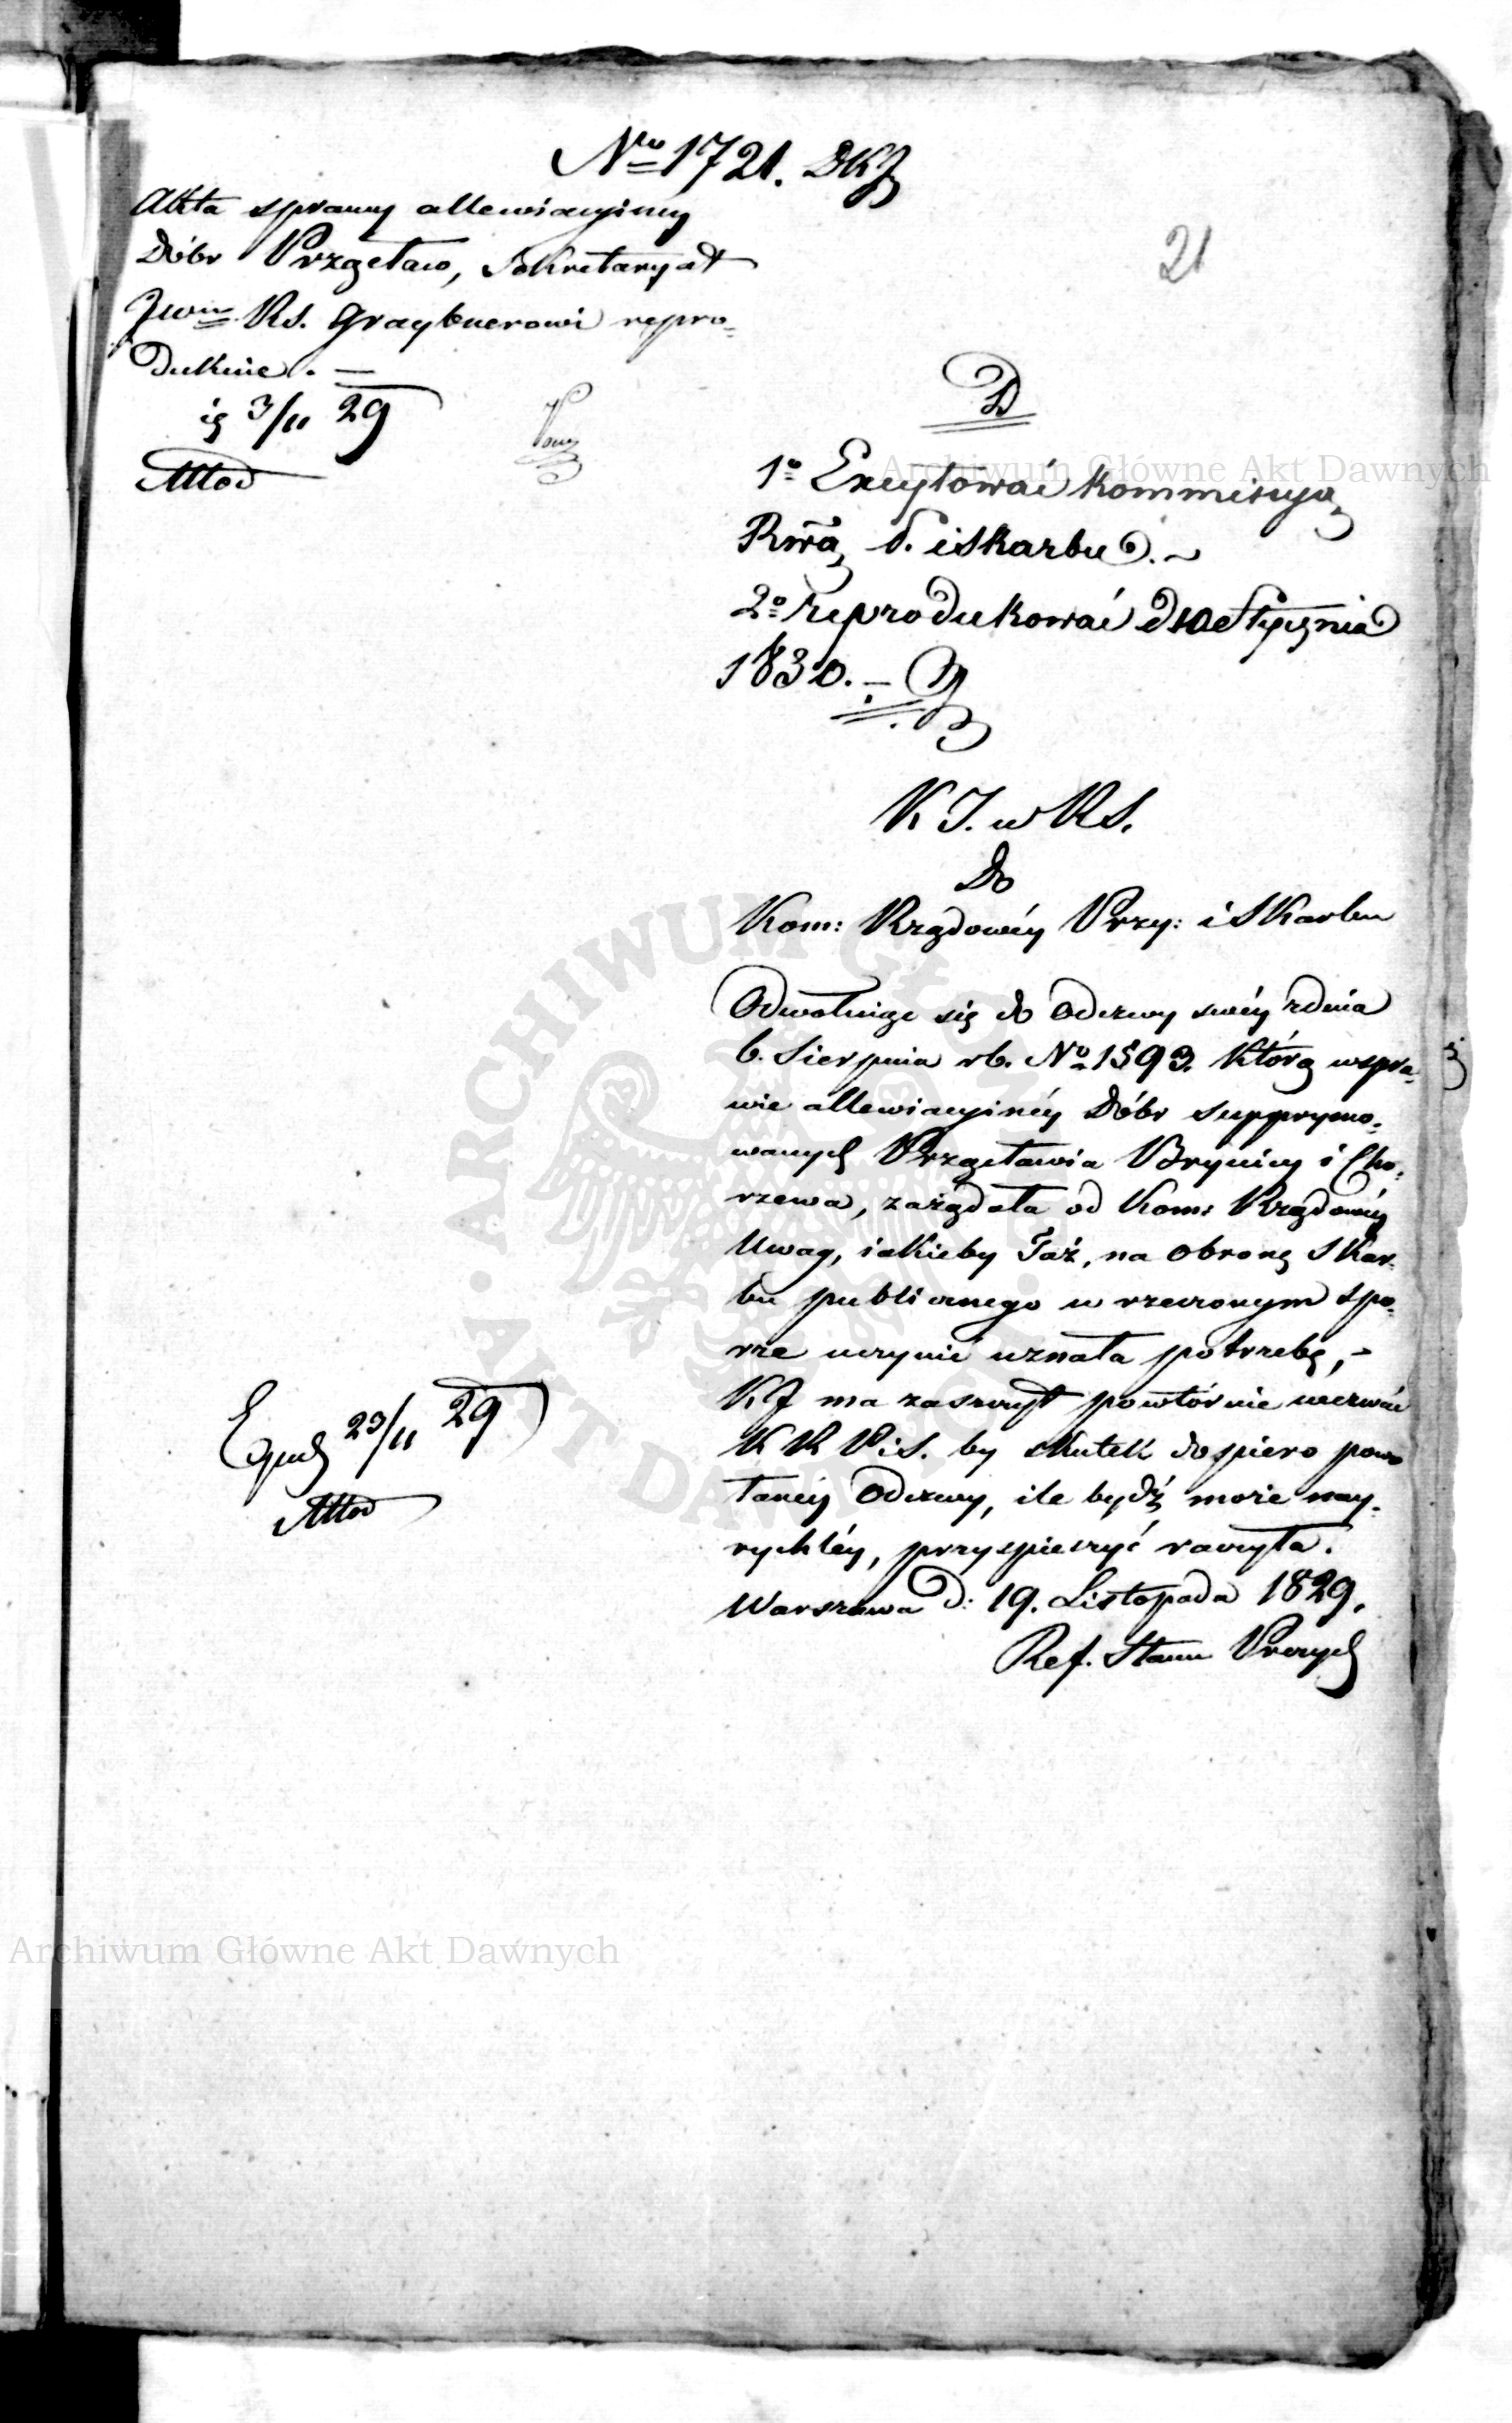 No 1721. DKJ
21
Akta sprawy allewiacyiney
Dóbr Przgctaw, Sekretaryat
JWmu Rs. Graybnerowi repro-
dukuie. —
3/11 29
Młod
D
1o Excytować Kommissyą
Rwą P. i Skarbu. ~
2o reprodukować d 10 Stycznia
1830. —
K J. w RS.
Do
Kom: Rządowéy Przy: i Skarbu
Odwołuiąc się do Odezwy swéy z dnia
6. Sierpnia rb. No 1593. którą w spra-
wie allewiacyinéy Dóbr supprymo-
wanych Brynicy i Cho-
rzewa, zażądała od Kom: Rządowéy
Uwag, iakieby Taż, na obronę Skar-
bu publicznego w rzeczonym spo-
rze uczynić uznała potrzebę, -
KJ ma zaszczyt powtórnie wezwać
K R P i S. by skutek dopiero powo
łanéy Odezwy, ile bydź może nay-
rychléy, przyspieszyć raczyła.
Warszawa d: 19. Listopada 1829.
Ref. Stanu
Exped 23/11 29
Młod
Archiwum Główne Akt Dawnych
Archiwum Główne Akt Dawnych
ARCHIWUM GŁÓWNE · AKT DAWNYCH ·